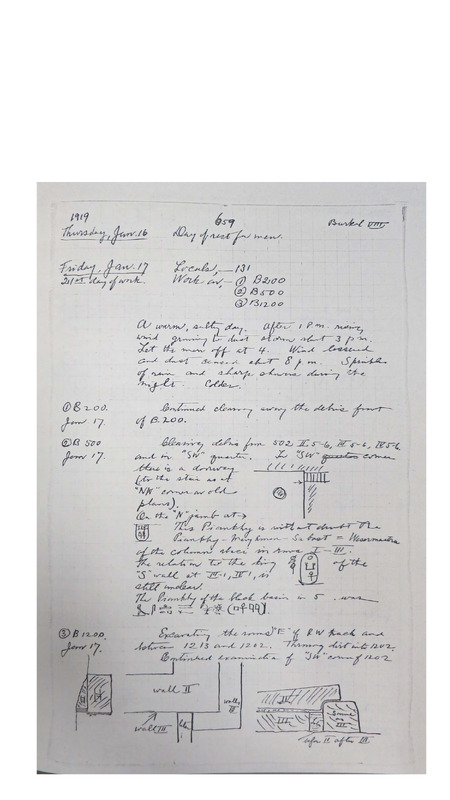 1919
659
Barkal VIII
Thursday, Jan. 16 Day of rest for men.
Friday, Jan. 17 Locals, — 131
21st day of work. Work on, — ① B200
② B500
③ B1200
A warm, sultry day. After 1 P.m. rainy,
wind growing to dust storm abt 3 p.m.
Let the men off at 4. Wind lessened
and dust ceased abt 8 p.m. Sprinkles
of rain and sharp showers during the
night. Colder.
① B200. Continued clearing away the debris front
Jan 17. of B.200.
② B500 Clearing debris from 502
Jan 17. and in "SW" quarter. In "SW" corner
there is a doorway
(to the stair as at
"NW" corner on old
plans).
On the "N" jamb at →
This Piankhy is without doubt the
Piankhy
of the columns in rows I–III.
The relation to the king of the
"S" wall at is
still unclear.
The Piankhy of the black basin in 5 . was
③ B1200. Excavating the rooms "E" of RW track and
Jan 17. between 1213 and 1212. Throwing dirt into 1202.
Continued examination of "SW" corner of 1202
wall II
wall III
wall III
II
III
after II after III